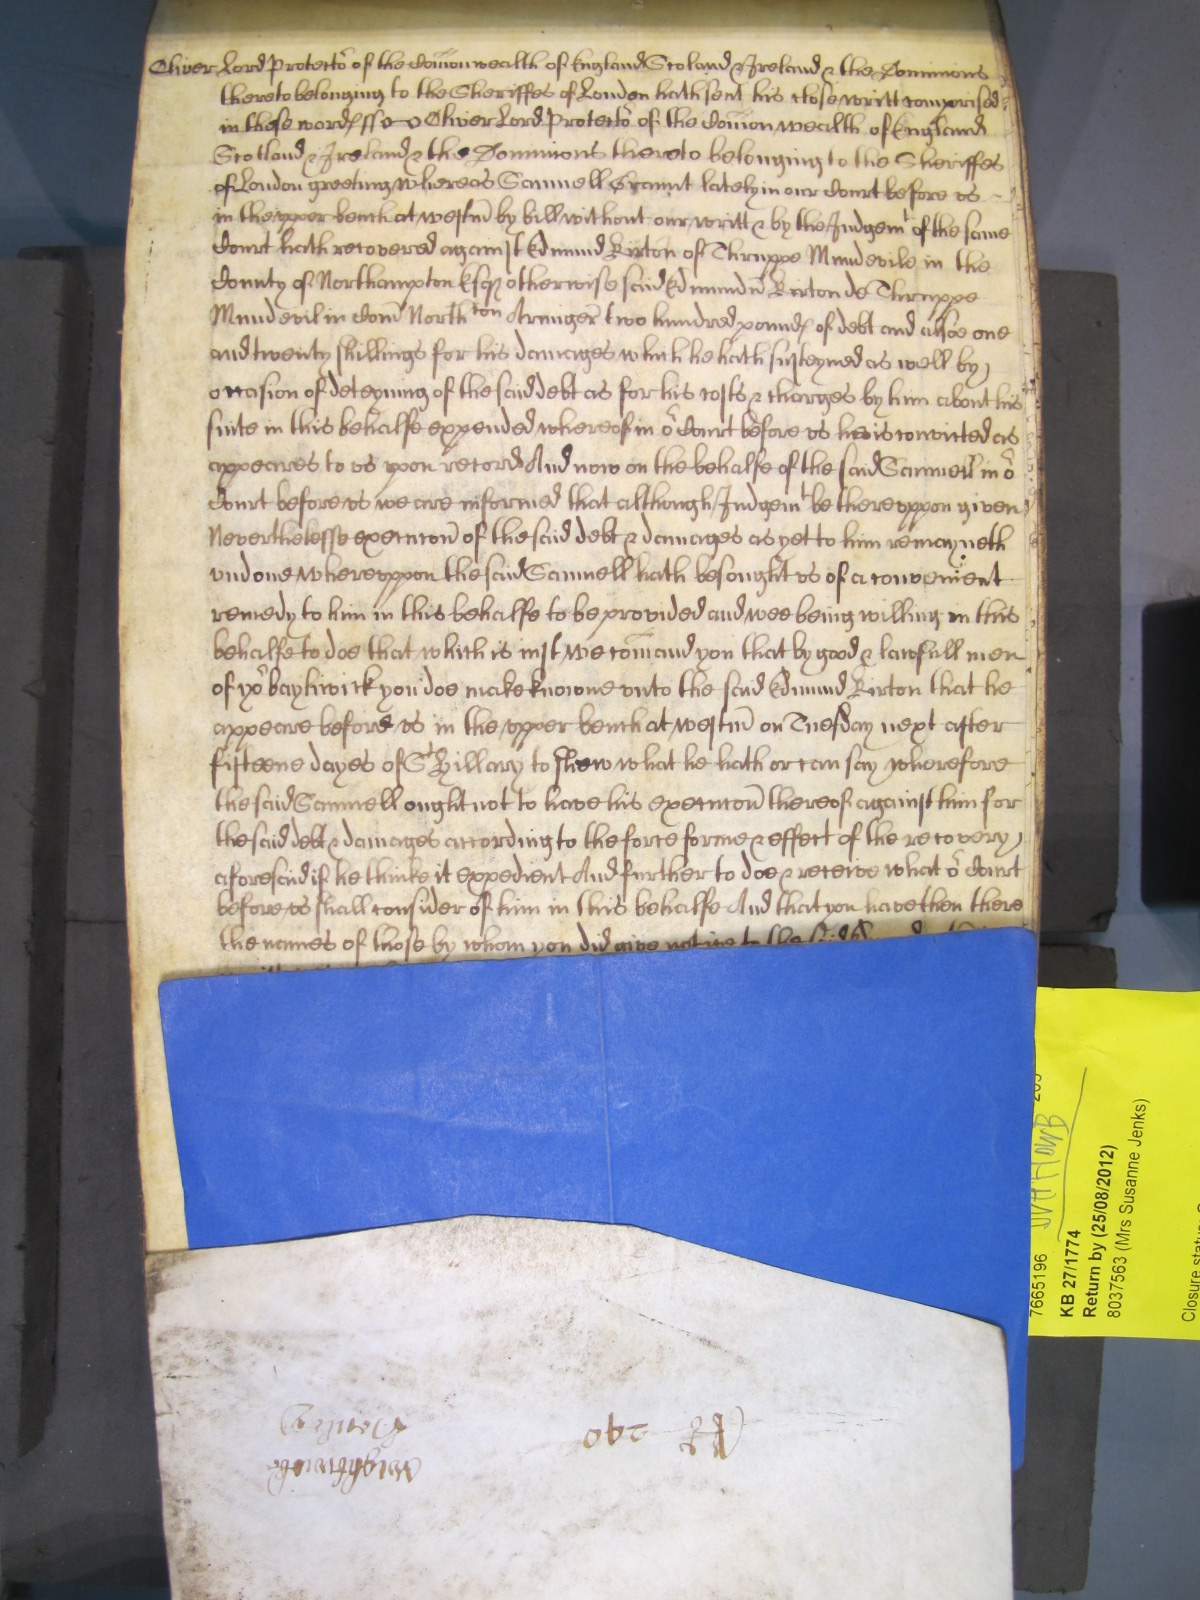 Oliver Lord Protector of the Comonwealth of England Scotland & Ireland & the Dominions
thereto belonging to the Sheriffes of London hath sent his close writt comprised
in these words ss Oliver Lord Protector of the Comonwealth of England
Scotland & Ireland & the Dominions thereto belonging to the Sheriffes
of London greeting Whereas Samuell Graunt lately in our Court before us
in the upper bench at Westm by bill without our writt & by the Judgemt of the same
Court hath recovered against Edmund Kirton of Thruppe Mundevile in the
County of Northampton Esqr otherwise said Edmundu Kirton de Thruppe
Mundevil in Com Northton Armiger two hundred pounds of debt and alsoe one
and twenty shillings for his damages which he hath susteyned as well by
occasion of deteyning of the said debt as for his costs & charges by him about his
suite in this behalfe expended whereof in or Court before us hee is convicted as
appeares to us upon record And now on the behalfe of the said Samuell in or
Court before us we are informed that although Judgemt be thereuppon given
Neverthelesse execucon of the said debt & damages as yet to him remayneth
undone whereuppon the said Samuell hath besought us of a convenient
remedy to him in this behalfe to be provided and wee being willing in this
behalfe to doe that which is just We comand you that by good & lawfull men
of yor baylywick you doe make knowne unto the said Edmund Kirton that he
appeare before us in the upper bench at Westm on Tuesday next after
fifteene dayes of St Hillary to shew what he hath or can say wherefore
the said Samuell ought not to have his execucon thereof against him for
the said debt & damages according to the force forme & effect of the recovery
aforesaid if he thinke it expedient And further to doe & receive what or Court
before us shall consider of him in this behalfe And that you have then there
the names of those by whom you did give notice to the said
7665196
KB 27/1774
Return by (25/08/2012)
8037563 (Mrs Susanne Jenks)
Closure status